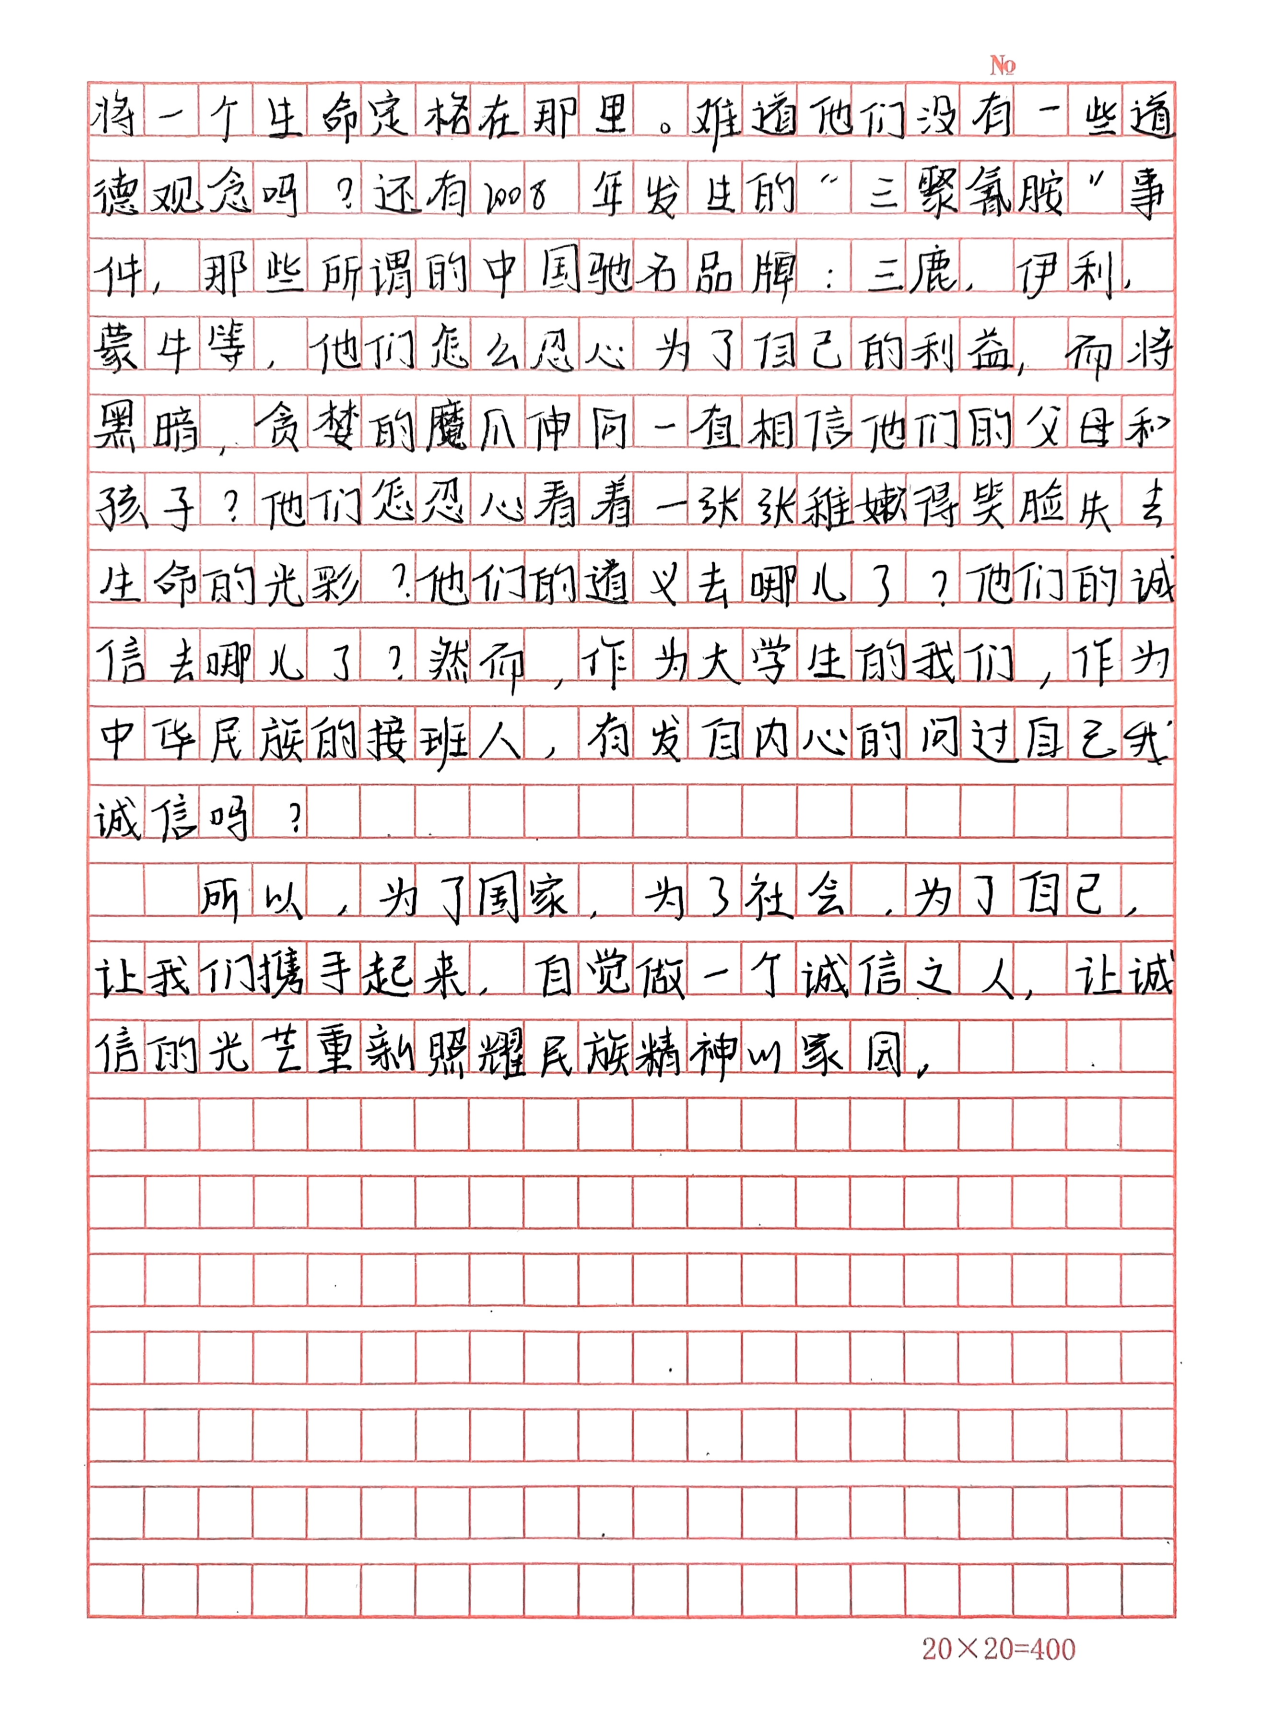 No
将一个生命定格在那里。难道他们没有一些道
德观念吗？还有2008年发生的“三聚氰胺”事
件，那些所谓的中国驰名品牌：三鹿，伊利，
蒙牛等，他们怎么忍心为了自己的利益，而将
黑暗，贪婪的魔爪伸向一直相信他们的父母和
孩子？他们怎忍心看着一张张稚嫩得笑脸失去
生命的光彩？他们的道义去哪儿了？他们的诚
信去哪儿了？然而，作为大学生的我们，作为
中华民族的接班人，有发自内心的问过自己我
诚信吗？
所以，为了国家，为了社会，为了自己，
让我们携手起来，自觉做一个诚信之人，让诚
信的光芒重新照耀民族精神的家园。
20×20=400